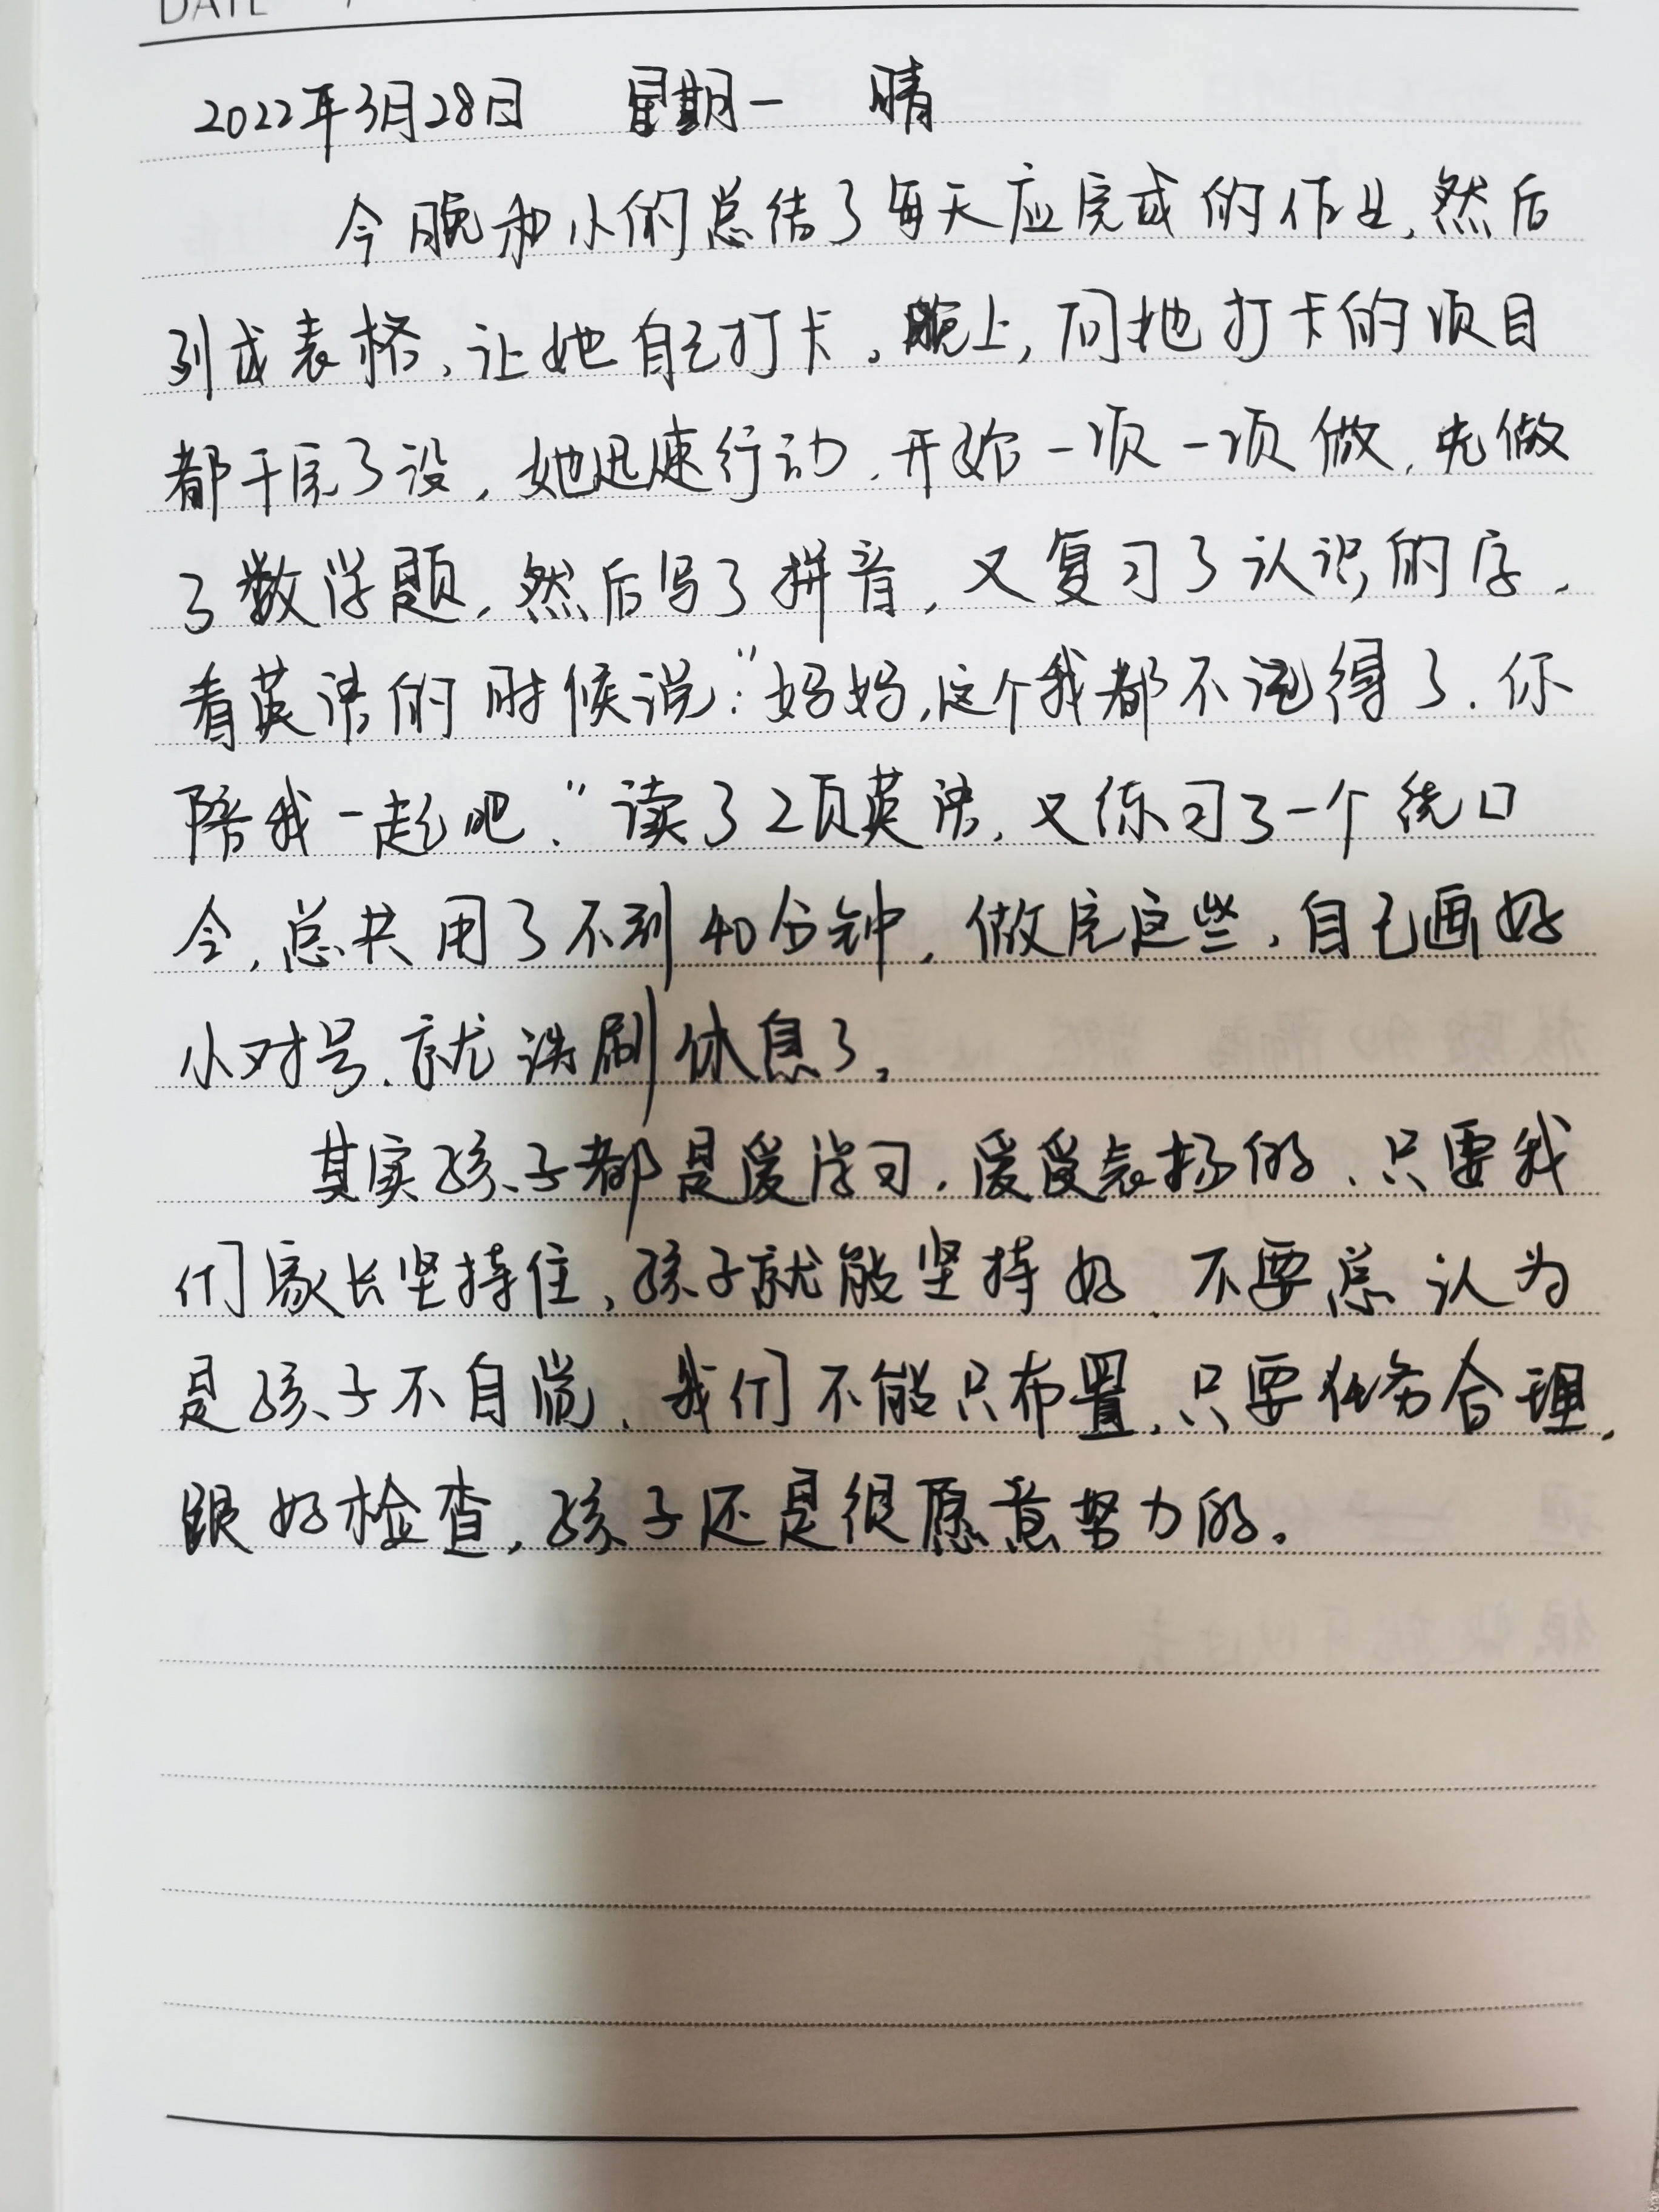 DATE
2022年3月28日 星期一 晴
今晚和小的总结了每天应完成的作业,然后
列成表格,让她自己打卡。晚上,问她打卡的项目
都干完了没,她迅速行动,开始一项一项做,先做
了数学题,然后写了拼音,又复习了认识的字,
看英语的时候说:"妈妈,这个我都不记得了.你
陪我一起吧."读了2页英语,又练习了一个绕口
令,总共用了不到40分钟,做完这些,自己画好
小对号,就洗刷休息了。
其实孩子都是爱学习,爱受表扬的,只要我
们家长坚持住,孩子就能坚持好,不要总认为
是孩子不自觉,我们不能只布置,只要任务合理,
跟好检查,孩子还是很愿意努力的。